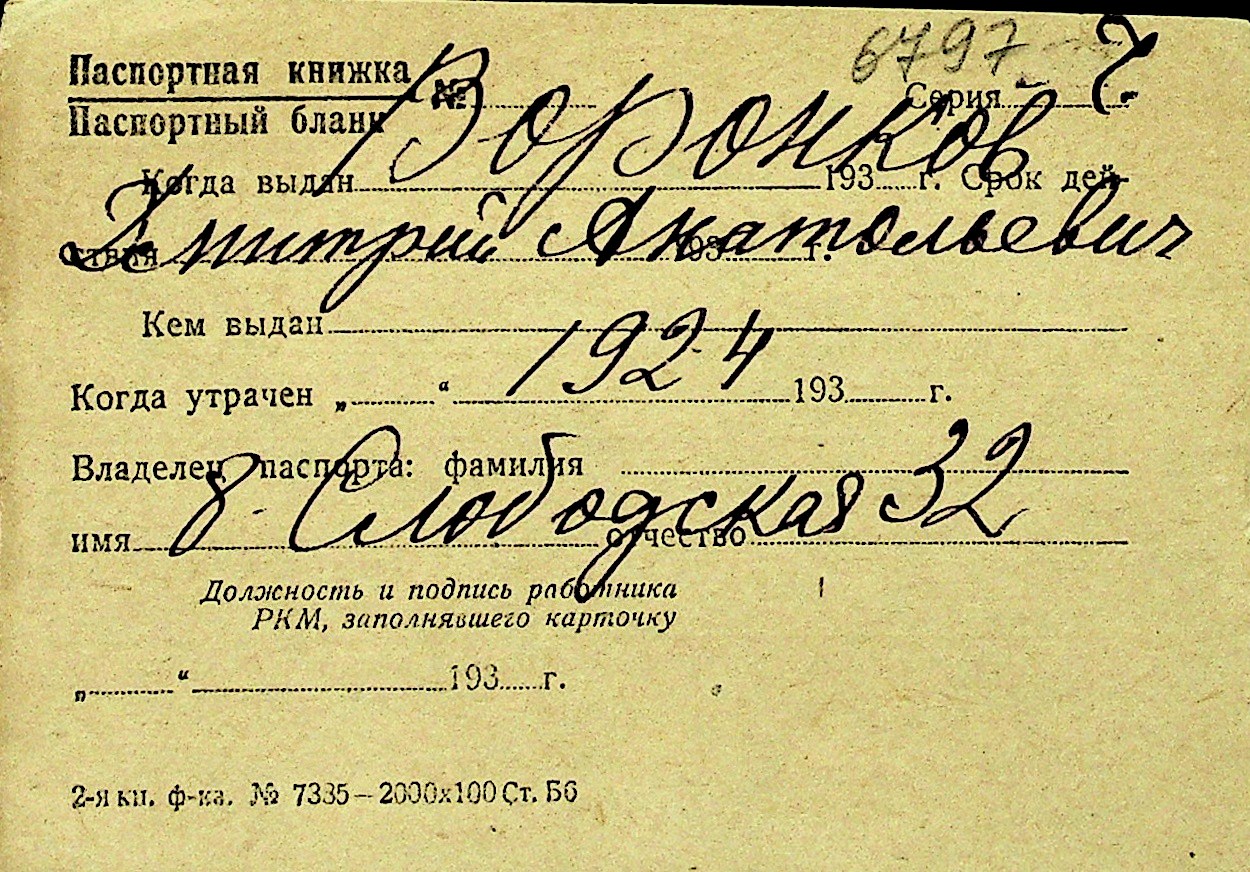 6797
Паспортная книжка № Серия
Паспортный бланк
Воронков
Когда выдан 193 г. Срок дей-
ствия 193 г.
Дмитрий Анатольевич
Кем выдан
1924
Когда утрачен „ “ 193 г.
Владелец паспорта: фамилия
8. Слободская 32
имя отчество
Должность и подпись работника
РКМ, заполнявшего карточку
„ “ 193 г.
2-я кн. ф-ка. № 7335—2000х100 Ст. Б6